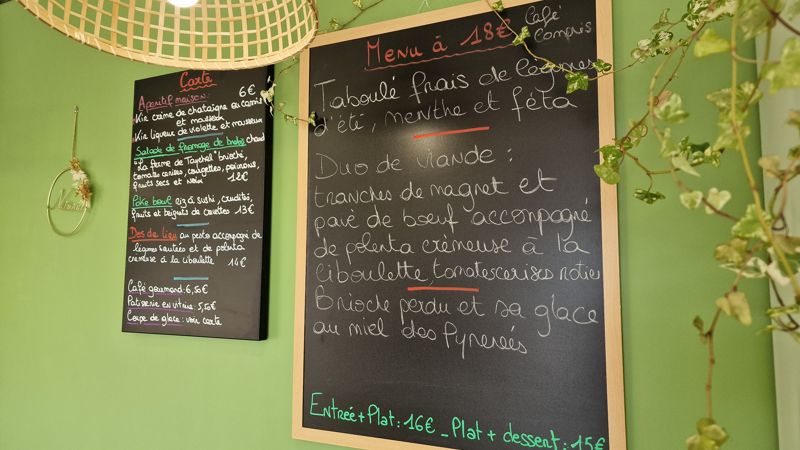 Carte
Aperitif maison: 6€
Kir crème de chataigne ou cassis
et mousseux
Kir liqueur de violette et mousseux
Salade de fromage de brebis chaud
la ferme de brioché,
tomates cerises, courgettes, poivrons,
fruits secs et noix 12€
Poke bowl riz à sushi, crudités,
fruits et beignets de crevettes 13€
Dos de lieu au pesto accompagné de
légumes sautées et de polenta
crémeuse à la ciboulette 14€
Café gourmand: 6,50€
Patisserie en vitrine: 5,50€
Coupe de glace: voir carte
Menu à 18€ Café
Compris
Taboulé frais de légumes
d'été, menthe et féta
Duo de viande :
tranches de magret et
pavé de boeuf accompagné
de polenta crémeuse à la
ciboulette, tomates cerises roties
Brioche perdu et sa glace
au miel des Pyrenées
Entrée+Plat: 16€ _ Plat + dessert: 15€